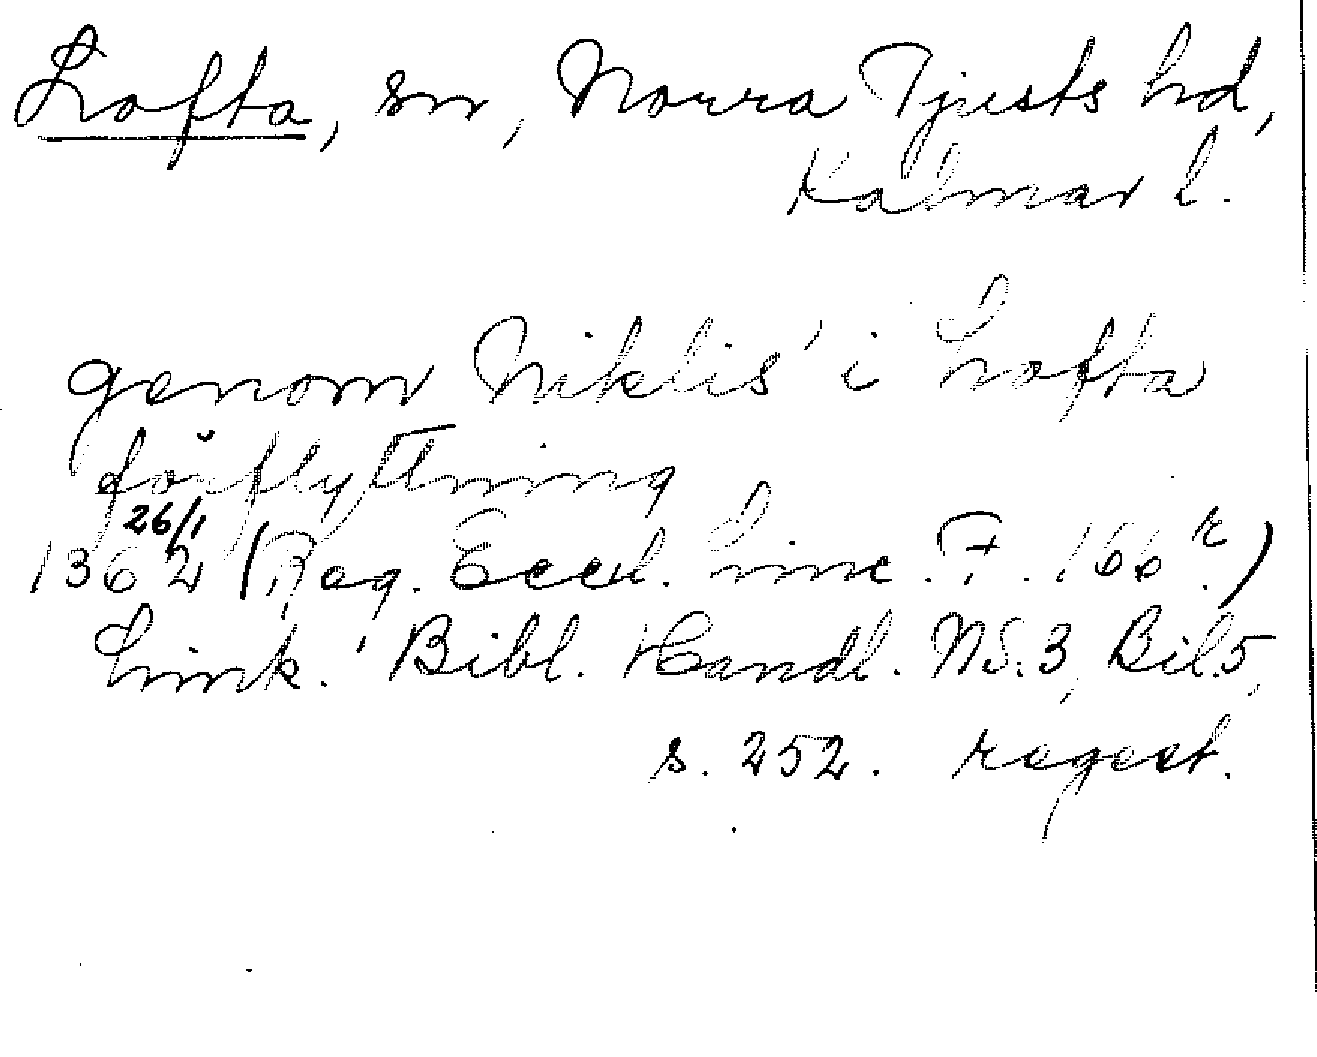 Lofta, sn, Norra Tjusts hd,
Kalmar l.
genom Niklis' i Lofta
förflyttning
26/1
1362 (Reg. Eccl. Linc. F. 166 r.)
Link. Bibl. Handl. NS.3, Bil.5,
s. 252. regest.